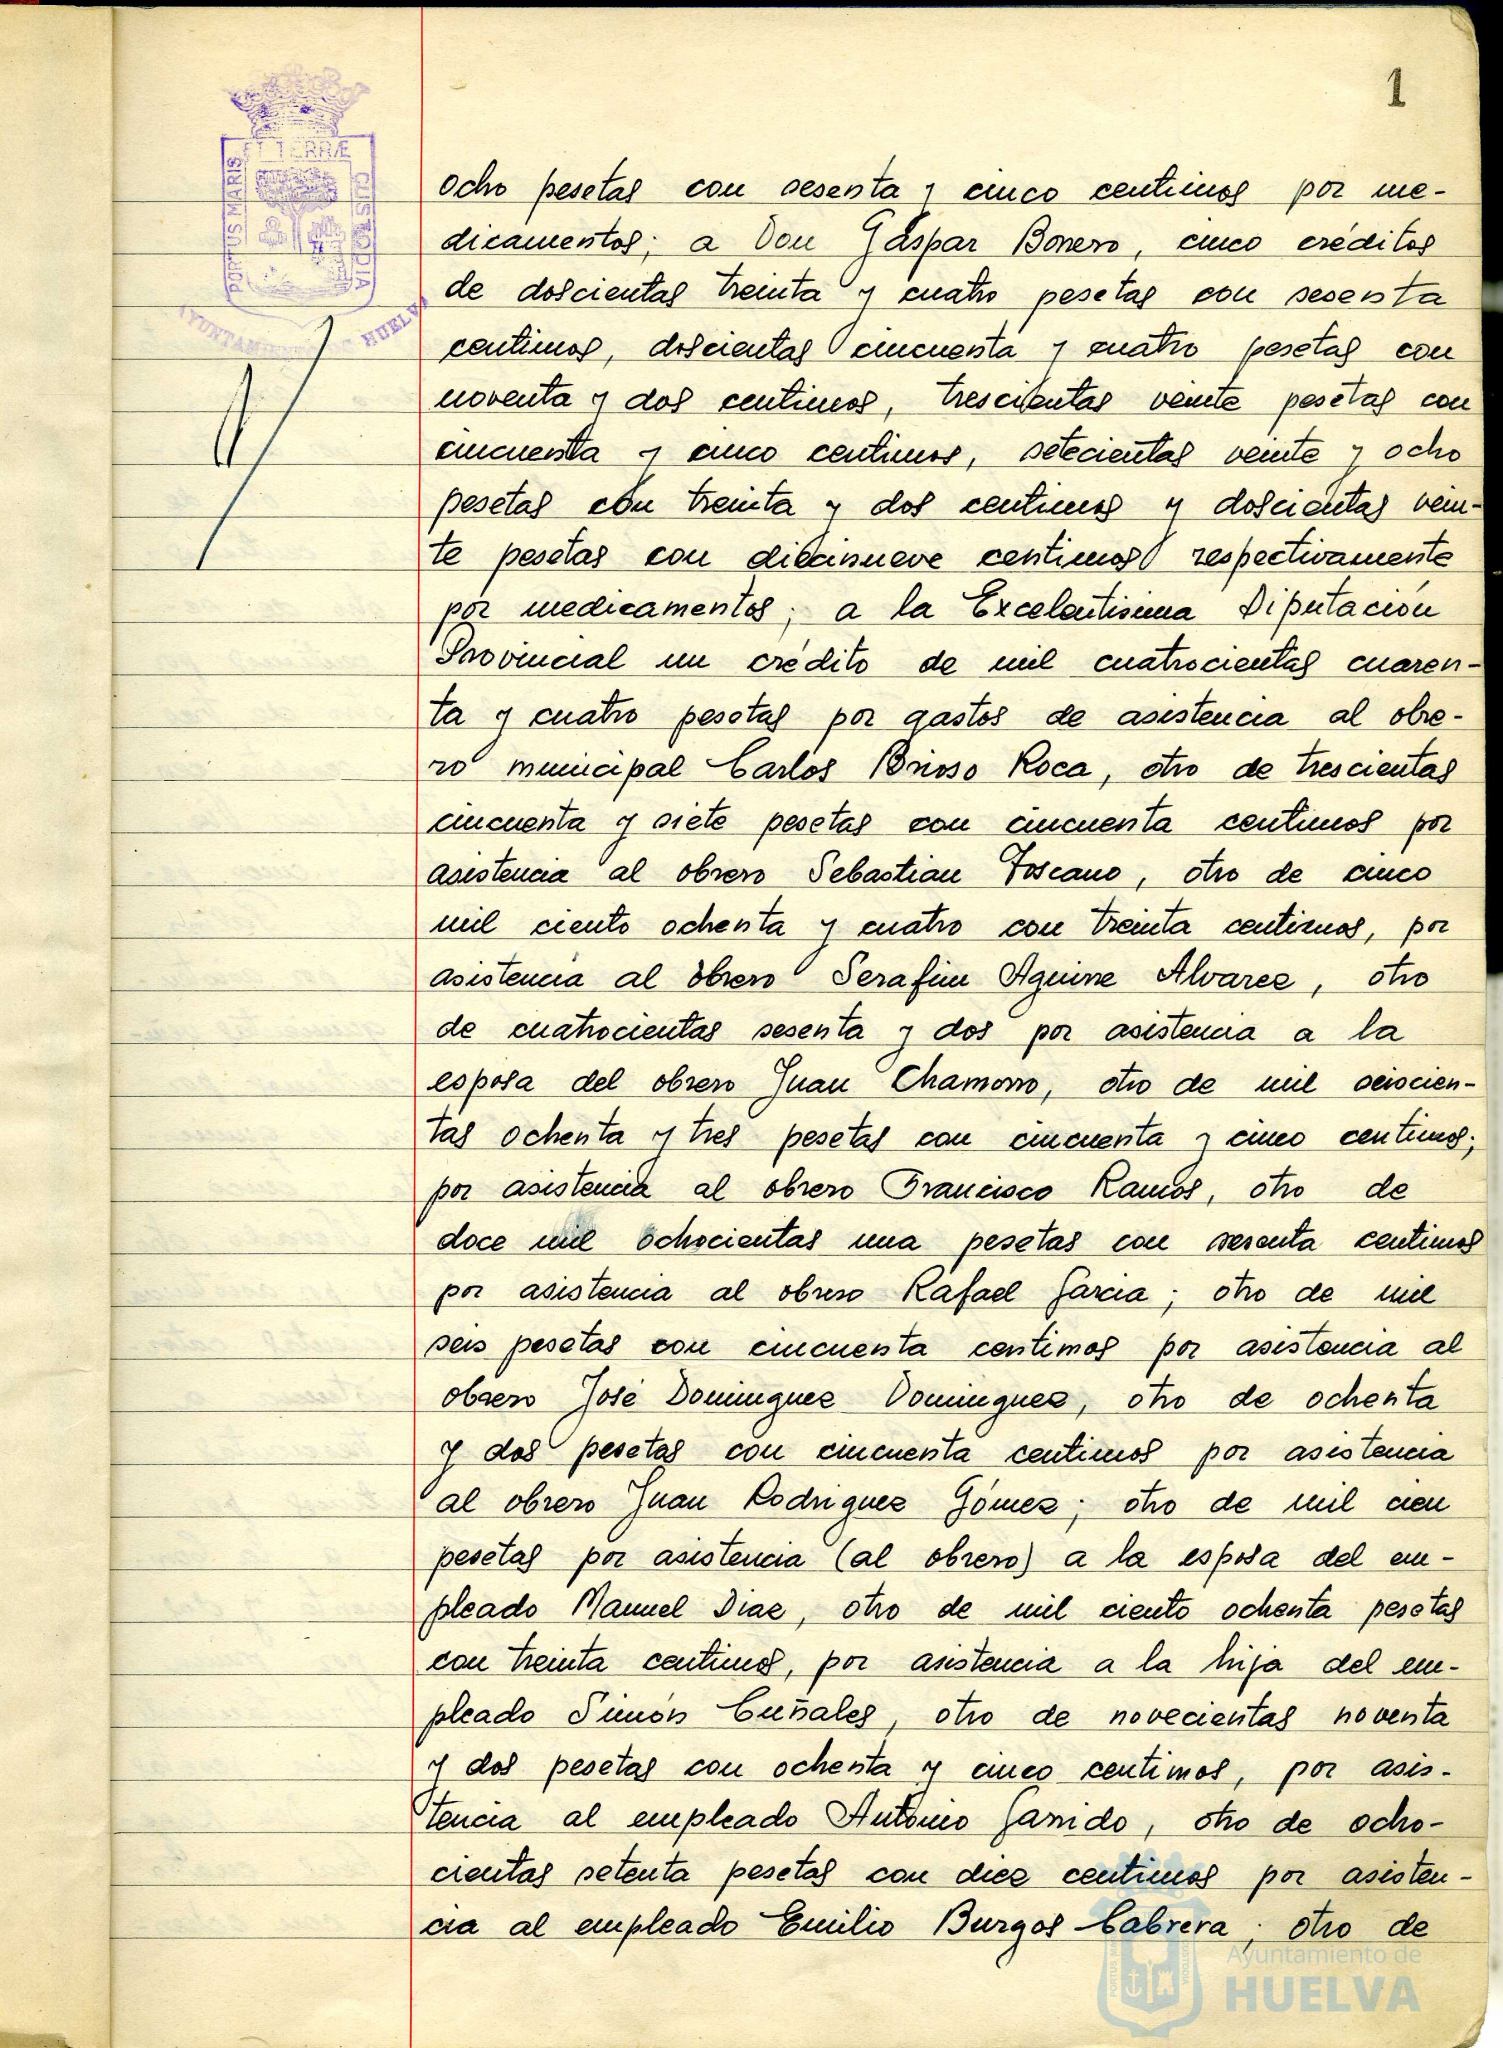 1
ET TERRÆ
PORTUS MARIS
CUSTODIA
AYUNTAMIENTO DE HUELVA
ocho pesetas con sesenta y cinco centimos por me-
dicamentos; a Don Gáspar Borrero, cinco créditos
de doscientas treinta y cuatro pesetas con sesenta
centimos, doscientas cincuenta y cuatro pesetas con
noventa y dos centimos, trescientas veinte pesetas con
cincuenta y cinco centimos, setecientas veinte y ocho
pesetas con treinta y dos centimos y doscientas vein-
te pesetas con diecinueve centimos respectivamente
por medicamentos; a la Excelentisima Diputación
Provincial un crédito de mil cuatrocientas cuaren-
ta y cuatro pesetas por gastos de asistencia al obre-
ro municipal Carlos Brioso Roca, otro de trescientas
cincuenta y siete pesetas con cincuenta centimos por
asistencia al obrero Sebastian Toscano, otro de cinco
mil ciento ochenta y cuatro con treinta centimos, por
asistencia al obrero Serafin Aguirre Alvarez, otro
de cuatrocientas sesenta y dos por asistencia a la
esposa del obrero Juan Chamorro, otro de mil seiscien-
tas ochenta y tres pesetas con cincuenta y cinco centimos;
por asistencia al obrero Francisco Ramos, otro de
doce mil ochocientas una pesetas con sesenta centimos
por asistencia al obrero Rafael Garcia; otro de mil
seis pesetas con cincuenta centimos por asistencia al
obrero José Dominguez Dominguez, otro de ochenta
y dos pesetas con cincuenta centimos por asistencia
al obrero Juan Rodriguez Gómez; otro de mil cien
pesetas por asistencia (al obrero) a la esposa del em-
pleado Manuel Diaz, otro de mil ciento ochenta pesetas
con treinta centimos, por asistencia a la hija del em-
pleado Simón Cuñales, otro de novecientas noventa
y dos pesetas con ochenta y cinco centimos, por asis-
tencia al empleado Antonio Garrido, otro de ocho-
cientas setenta pesetas con diez centimos por asisten-
cia al empleado Emilio Burgos Cabrera; otro de
Ayuntamiento de
HUELVA